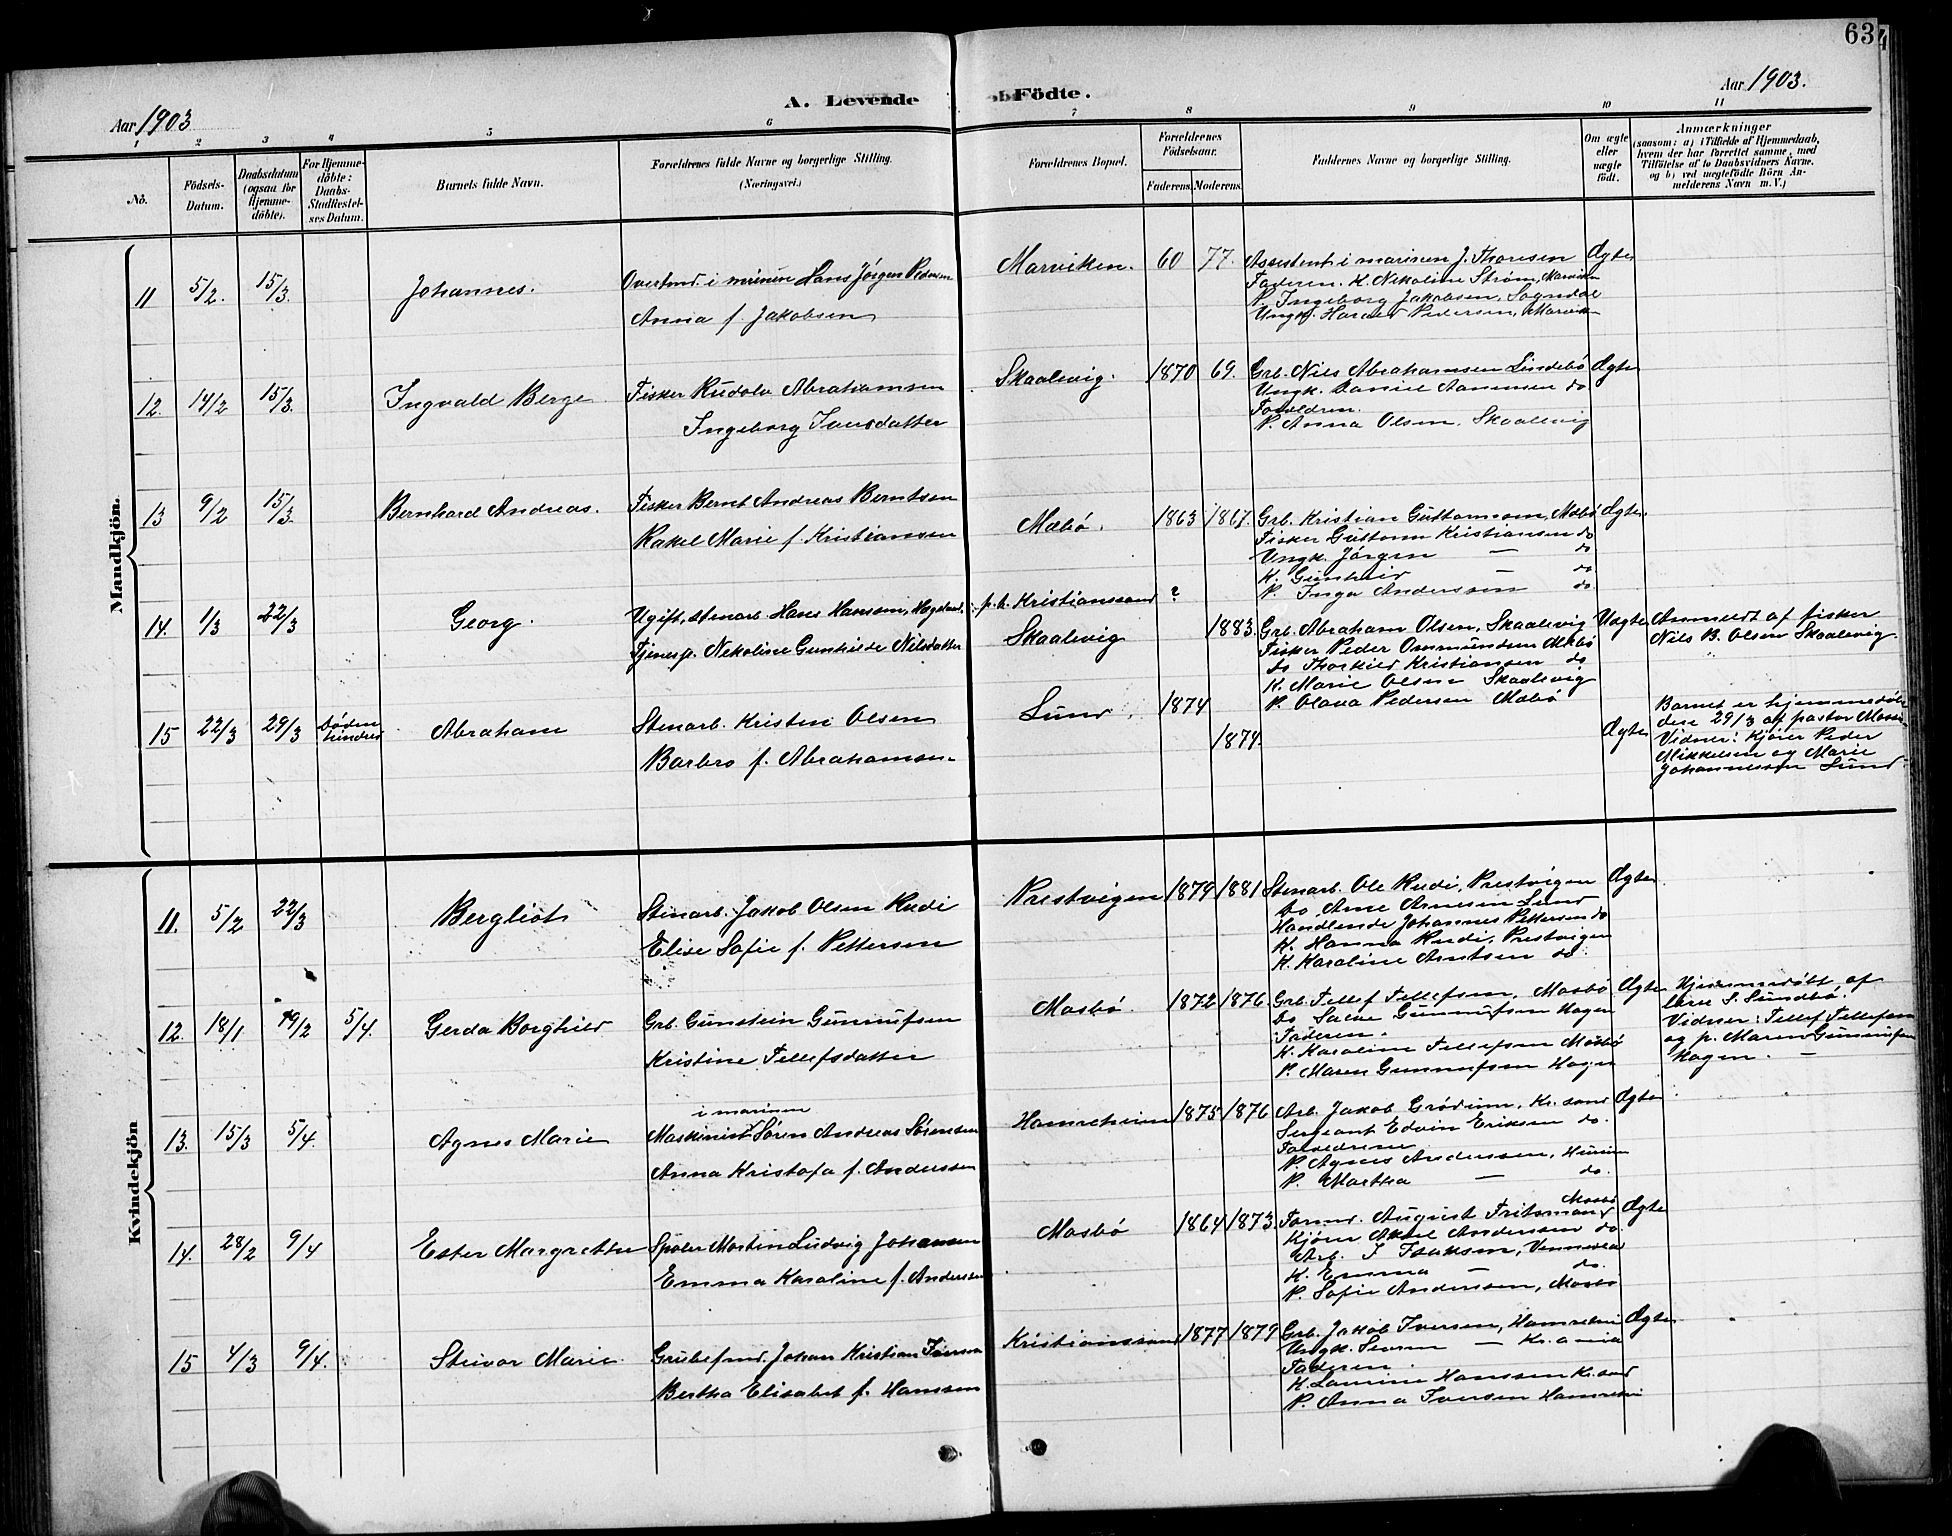 63
Aar 1903
A. Levende Födte.
Aar 1903.
1 2 3 4 5 6 7 8 9 10 11
No.
Födsels-Datum.
Daabsdatum (ogsaa for Hjemme-döbte).
For Hjemme-döbte: Daabs-Stadfestel-ses Datum.
Barnets fulde Navn.
Forældrenes fulde Navne og borgerlige Stilling.
(Næringsvei.)
Forældrenes Bopæl.
Forældrenes Födselsaar.
Faderens. Moderens.
Faddernes Navne og borgerlige Stilling.
Om ægte eller uægte födt.
Anmærkninger
(saasom: a) i Tilfælde af Hjemmedaab,
hvem der har forrettet samme, med
Tilföielse af to Daabsvidners Navne,
og b) ved uægtefödte Börn An-
melderens Navn m. V.)
Mandkjön.
11 5/2. 15/3. Johannes.
Hans Jørgen Pedersen
Anna f. Jakobsen
Marviken. 60 77.
Assistent i marinen J. Thorsen
Faderen. K. Nikoline Strøm, Marviken
P. Ingeborg Jakobsen, Sogndal
Ungk. Harald Pedersen, Marviken
Ægte
12. 14/2 15/3. Ingvald Berge
Fisker Rudolv Abrahamsen
Ingeborg Iversdatter
Skaalevig. 1870 69.
Grb. Nils Abrahamsen Lindebø
Ungk. Daniel Aanensen do
Forældren.
P. Anna Olsen, Skaalevig
Ægte
13 9/2 15/3. Bernhard Andreas.
Fisker Bernt Andreas Berntsen
Rakel Marie f. Kristiansen
Mæbø. 1863 1867.
Grb. Kristian Guttormsen, Mæbø
Fisker Guttorm Kristiansen do
Ungk. Jørgen — do
K. Gunhild — do
P. Inga Anderssen do.
Ægte.
14. 1/3 22/3 Georg.
Ugift, stenarb. Hans Hansen,
Tjenesp. Nikoline Gunhilde Nilsdatter
p.t. Kristianssand ?
Skaalevig 1883.
Grb. Abraham Olsen, Skaalevig
Fisker Peder Ommundsen Mæbø
do Thorkild Kristiansen do
K. Marie Olsen Skaalevig
P. Olava Pedersen Mæbø
Uægte
Anmeldt af fisker
Nils B. Olsen Skaalevig
15 22/3 29/3 Døden hindret Abraham
Stenarb. Kristen Olsen
Barbro f. Abrahamsen
Lund. 1874
1874.
Ægte
Barnet er hjemmedøbt
29/3 af pastor
Vidner: Kjører Peder
Mikkelsen og Marie
Johannessen Lund.
Kvindekjön
11. 5/2 22/3 Bergliot
Stenarb. Jakob Olsen Rudi
Elise Sofie f. Pettersen
Prestvigen 1879 1881
Stenarb. Ole Rudi, Prestvigen
Do Arne Arnesen Lund
Handlende Johannes Pettersen do
K. Hanna Rudi, Prestvigen
K. Karoline Arntsen do.
Ægte
12. 18/1 19/2 5/4. Gerda Borghild
Grb. Gunstein Gunnufsen
Kristine Tellefsdatter
Mosbø. 1872 1876.
Grb. Tellef Tellefsen, Mosbø
Do Salve Gunnufsen Hagen
Faderen.
K. Karoline Tellefsen Mosbø
P. Maren Gunnufsen Hagen
Ægte
Hjemmedøbt af
lærer S. Sundbø.
Vidner: Tellef Tellefsen
og p. Maren Gunnufsen
Hagen. —
13. 15/3 5/4. Agnes Marie
i marinen
Maskinist Søren Andreas Sørensen
Anna Kristofa f. Anderssen
Hamreheien 1875 1876
Arb. Jakob Grødum, Kr.sand
Sergeant Edvin Eriksen do.
Forældrene
P. Agnes Anderssen,
P. Martha — do.
Ægte
14. 28/2 9/4 Ester Margrethe
Spoler Martin Ludvig Johansen
Emma Karoline f. Andersen
Mosbø 1864 1873.
Formd. August Fritzman, Mosbø
Kjører Aksel Andersen do.
Arb. I Isaksen, Vennesla
K. Emma — do.
P. Sofie Andersen, Mosbø
Ægte
15 4/3 9/4. Steivor Marie
Johan Kristian Iversen
Bertha Elisabet f. Hanssen
Kristianssand 1877 1879
Grb. Jakob Iversen, Hamreheien
Ungk. Severin — Kr.ania
Faderen.
K. Lavine Hanssen Kr.sand
P. Anna Iversen Hamreheien
Ægte